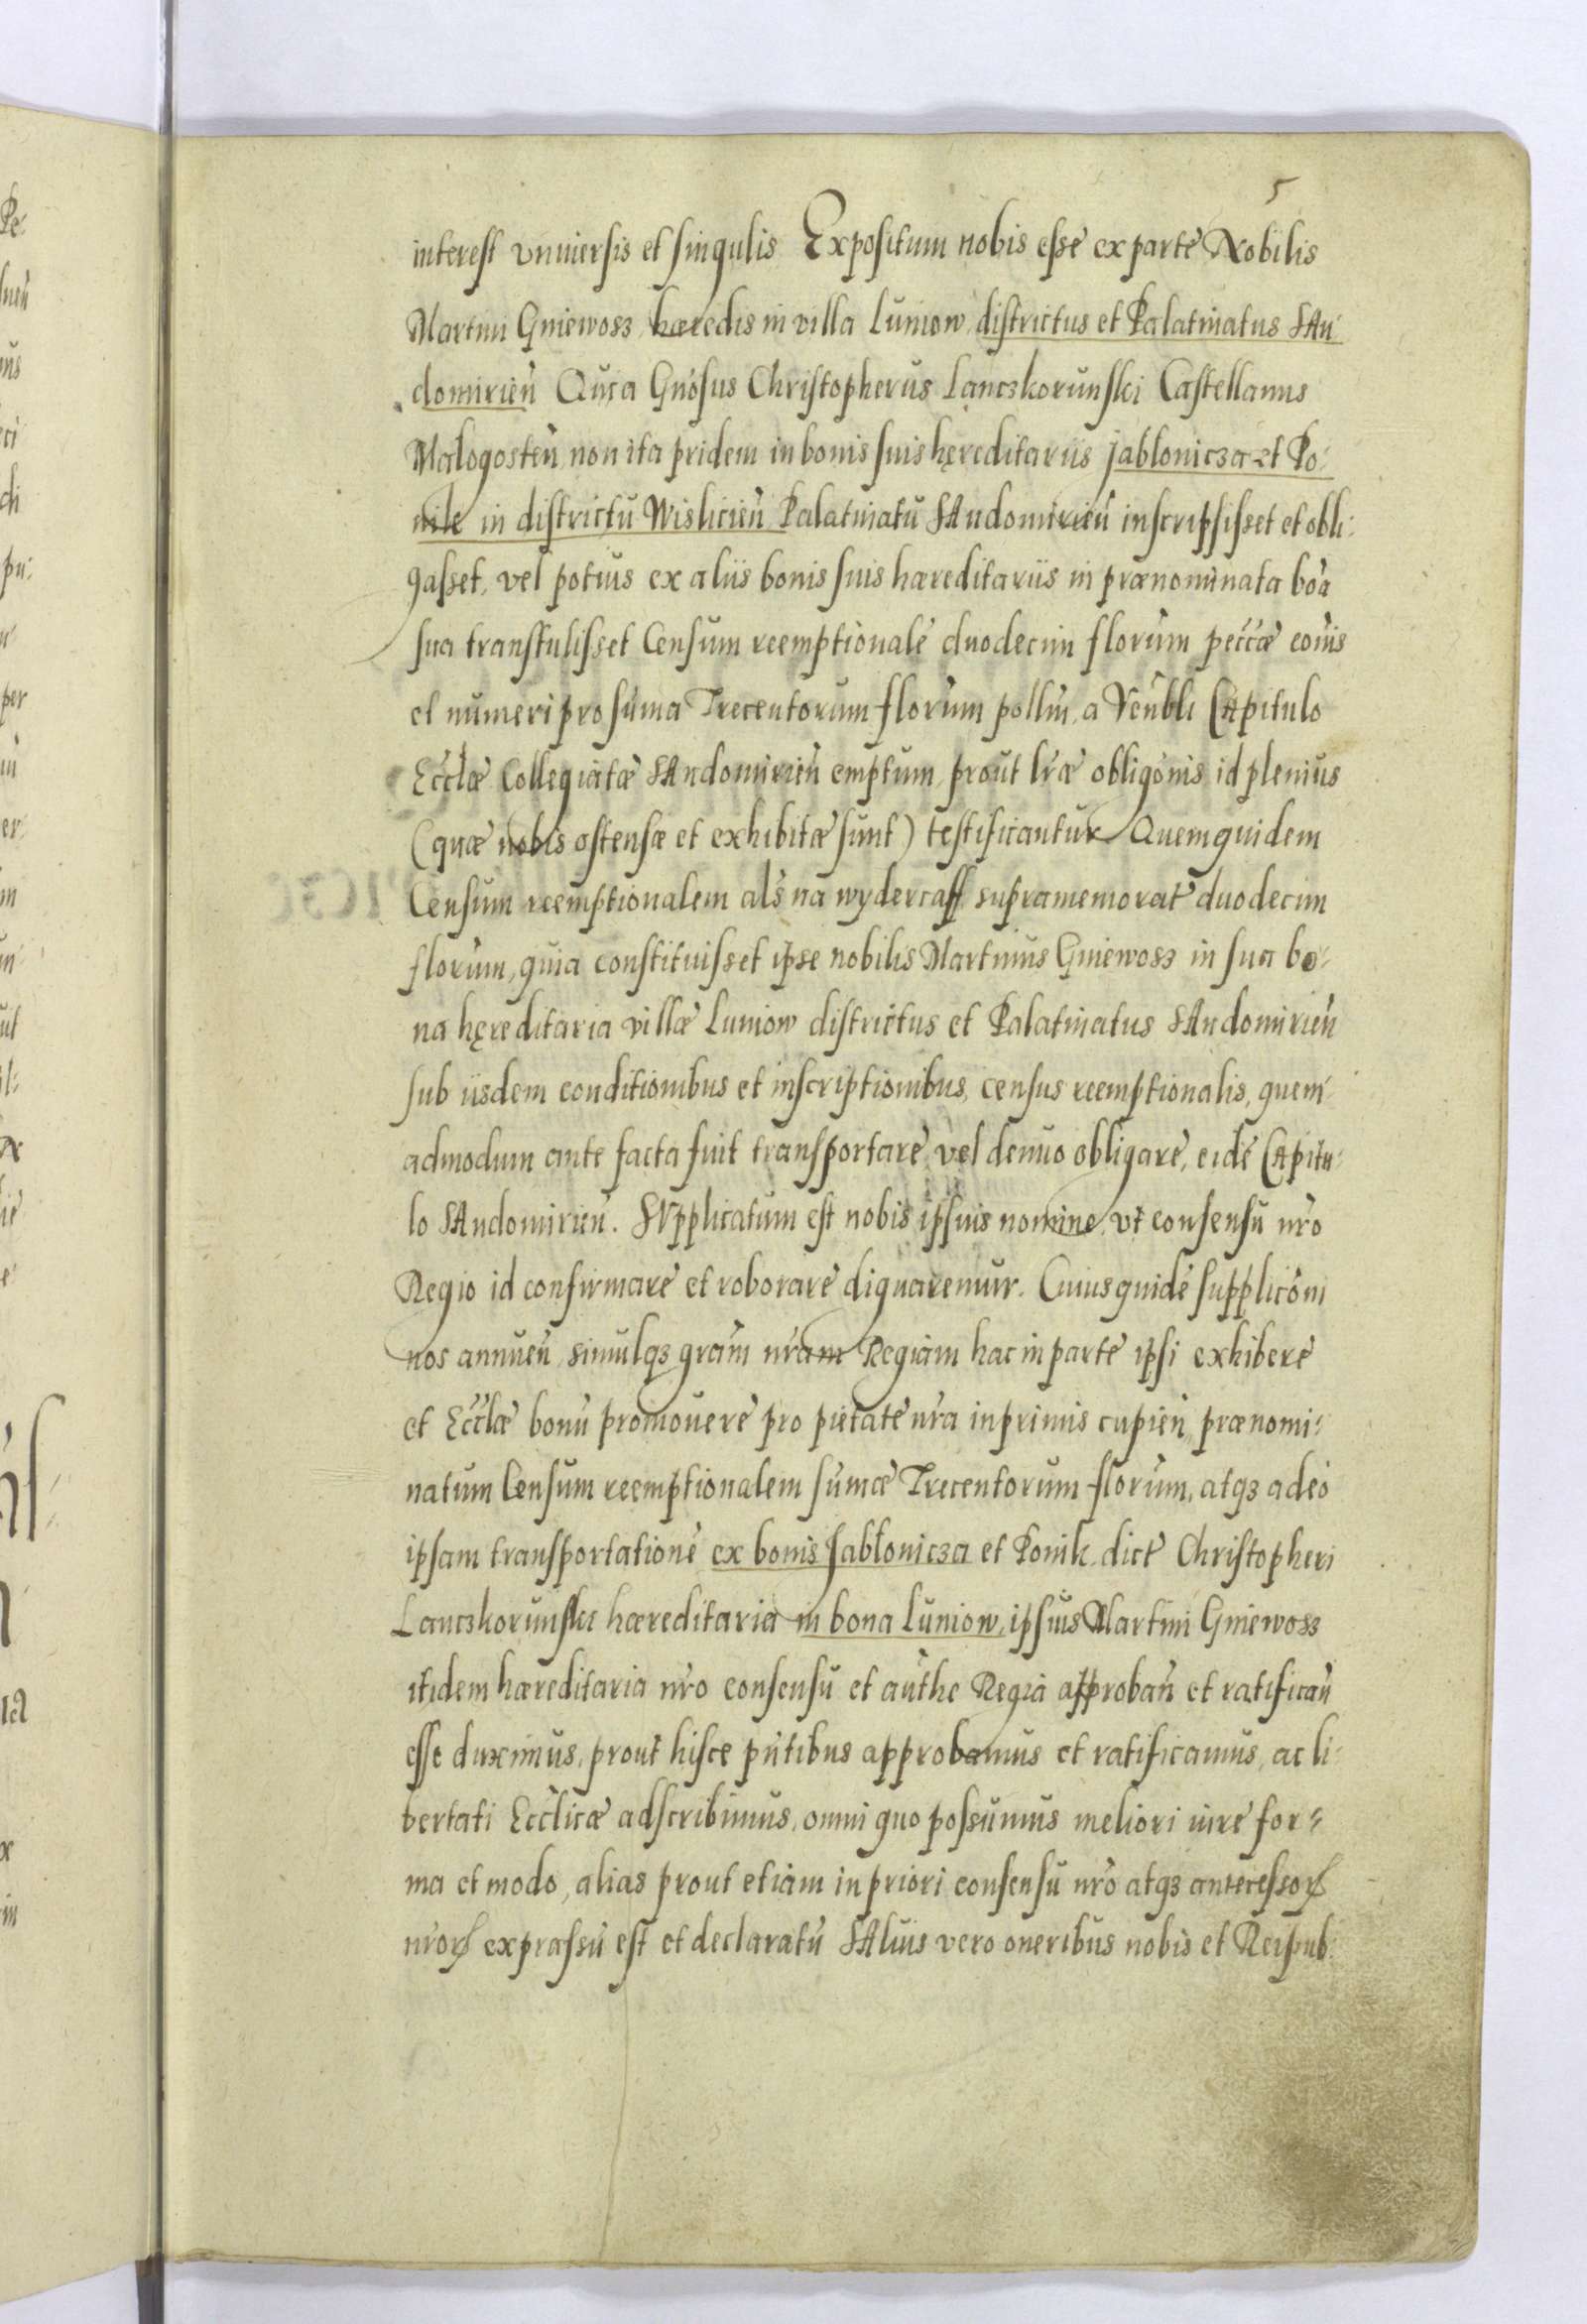 5
interest vniuersis et singulis Expositum nobis esse ex parte Nobilis
Martini Gniewosz hæredis in villa Luniow districtus et Palatinatus SAn-
domirień Quia Gnosus Christopherus Lanczkorunski Castellanus
Malogosteń non ita pridem in bonis suis hęreditariis Jablonicza et Po-
nik in districtu Wislicień Palatinatu SAndomirień inscripsisset et obli-
gasset, vel potius ex aliis bonis suis hæreditariis in prænominata boã
sua transtulisset Censum reemptionalẽ duodecim florum peccæ cois
et numeri pro suma Trecentorum florum pollin, a Venbli CApitulo
Ecclæ Collegiatæ SAndomirień emptum, prout lræ obligonis id plenius
(quæ nobis ostensæ et exhibitæ sunt) testificantur Quemquidem
Censum reemptionalem als na wydercaff supramemorat duodecim
florum, quia constituisset ipse nobilis Martinus Gniewosz in sua bo-
na hęreditaria villæ Luniow districtus et Palatinatus SAndomirień
sub iisdem conditionibus et inscriptionibus, census reemptionalis, quem-
admodum ante facta fuit transportare vel denuo obligare, eidẽ CApitu-
lo SAndomirień. SVpplicatum est nobis ipsius nomine, vt consensu nro
Regio id confirmare et roborare dignaremur. Cuiusquidẽ supplicõni
nos annueń simulqz gram nram Regiam hac in parte ipsi exhibere
et Ecclæ bonũ promouere pro pietate nra inprimis cupień, prænomi-
natum Censum reemptionalem sumæ Trecentorum florum, atqz adeo
ipsam transportationẽ ex bonis Jablonicza et Ponik, dict Christopheri
Lanczkorunski hæreditaria in bona Luniow, ipsius Martini Gniewosz
itidem hæreditaria nro consensu et authe Regia approbań et ratificań
esse duximus, prout hisce pntibus approbamus et ratificamus, ac li-
bertati Ecclicæ adscribimus, omni quo possumus meliori iure for-
ma et modo, alias prout etiam in priori consensu nro atqz antecessorꝝ
nrorꝝ exprassũ est et declaratũ SAluis vero oneribus nobis et Reipub: